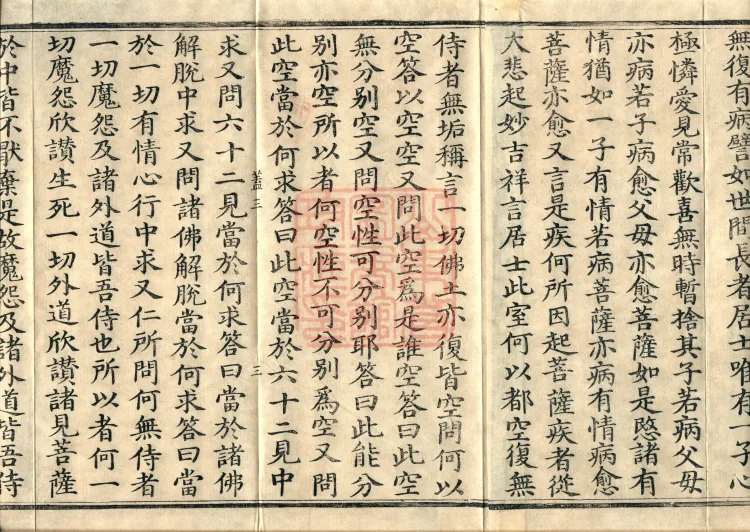 無復有病譬如世間長者居士唯有一子心
極憐愛見常歡喜無時暫捨其子若病父母
亦病若子病愈父母亦愈菩薩如是愍諸有
情猶如一子有情若病菩薩亦病有情病愈
菩薩亦愈又言是疾何所因起菩薩疾者從
大悲起妙吉祥言居士此室何以都空復無
侍者無垢稱言一切佛土亦復皆空問何以
空答以空空又問此空為是誰空答曰此空
無分別空又問空性可分別耶答曰此能分
別亦空所以者何空性不可分別為空又問
此空當於何求答曰此空當於六十二見中
蓋三 三
求又問六十二見當於何求答曰當於諸佛
解脫中求又問諸佛解脫當於何求答曰當
於一切有情心行中求又仁所問何無侍者
一切魔怨及諸外道皆吾侍也所以者何一
切魔怨欣讚生死一切外道欣讚諸見菩薩
於中皆不厭棄是故魔怨及諸外道皆吾侍